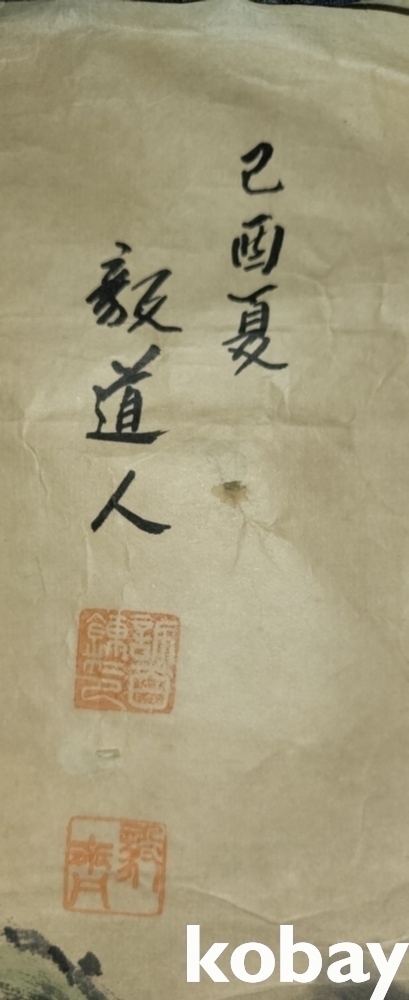 己酉夏
毅道人
kobay